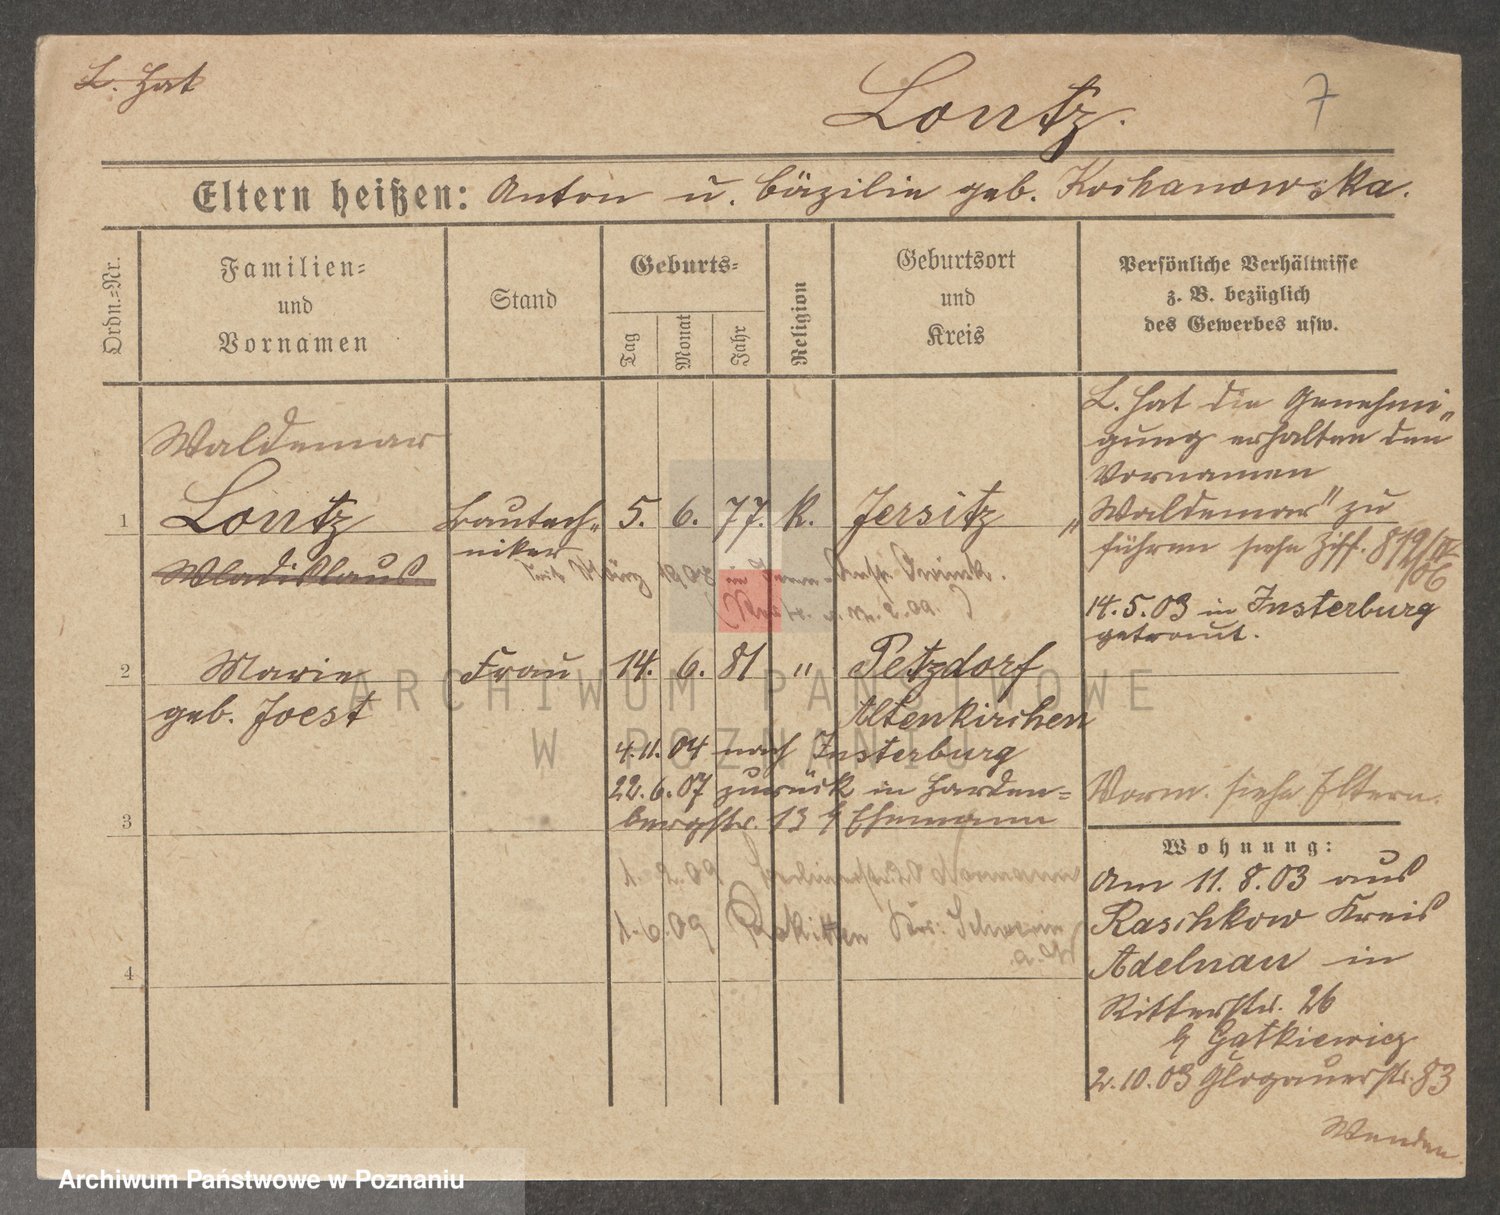 L. hat
Lontz.
7
Eltern heißen: Anton u. Cäzilie geb. Kochanowska.
Ordn.-Nr.
Familien-
und
Vornamen
Stand
Geburts-
Tag
Monat
Jahr
Religion
Geburtsort
und
Kreis
Persönliche Verhältnisse
z. B. bezüglich
des Gewerbes usw.
Waldemar
1 Lontz Bautech- 5. 6. 77. K. Jersitz
niker
Wladislaus
L. hat die Genehmi-
gung erhalten den
Vornamen
„Waldemar" zu
führen siehe Ziff. 819/IV
/06
14.5.03 in Insterburg
getraut.
2 Marie Frau 14. 6. 81 " Petzdorf
geb. Joest Altenkirchen
4.11.04 nach Insterburg
22.6.07 zurück in Harden-
3 bergstr. 13 b Ehemann
4
Vorm. siehe Eltern.
Wohnung:
Am 11.8.03 aus
Raschkow Kreis
Adelnau in
Ritterstr. 26
b Gatkiewicz
2.10.03 Glogauerstr. 83
Wenden
ARCHIWUM PAŃSTWOWE
W POZNANIU
Archiwum Państwowe w Poznaniu